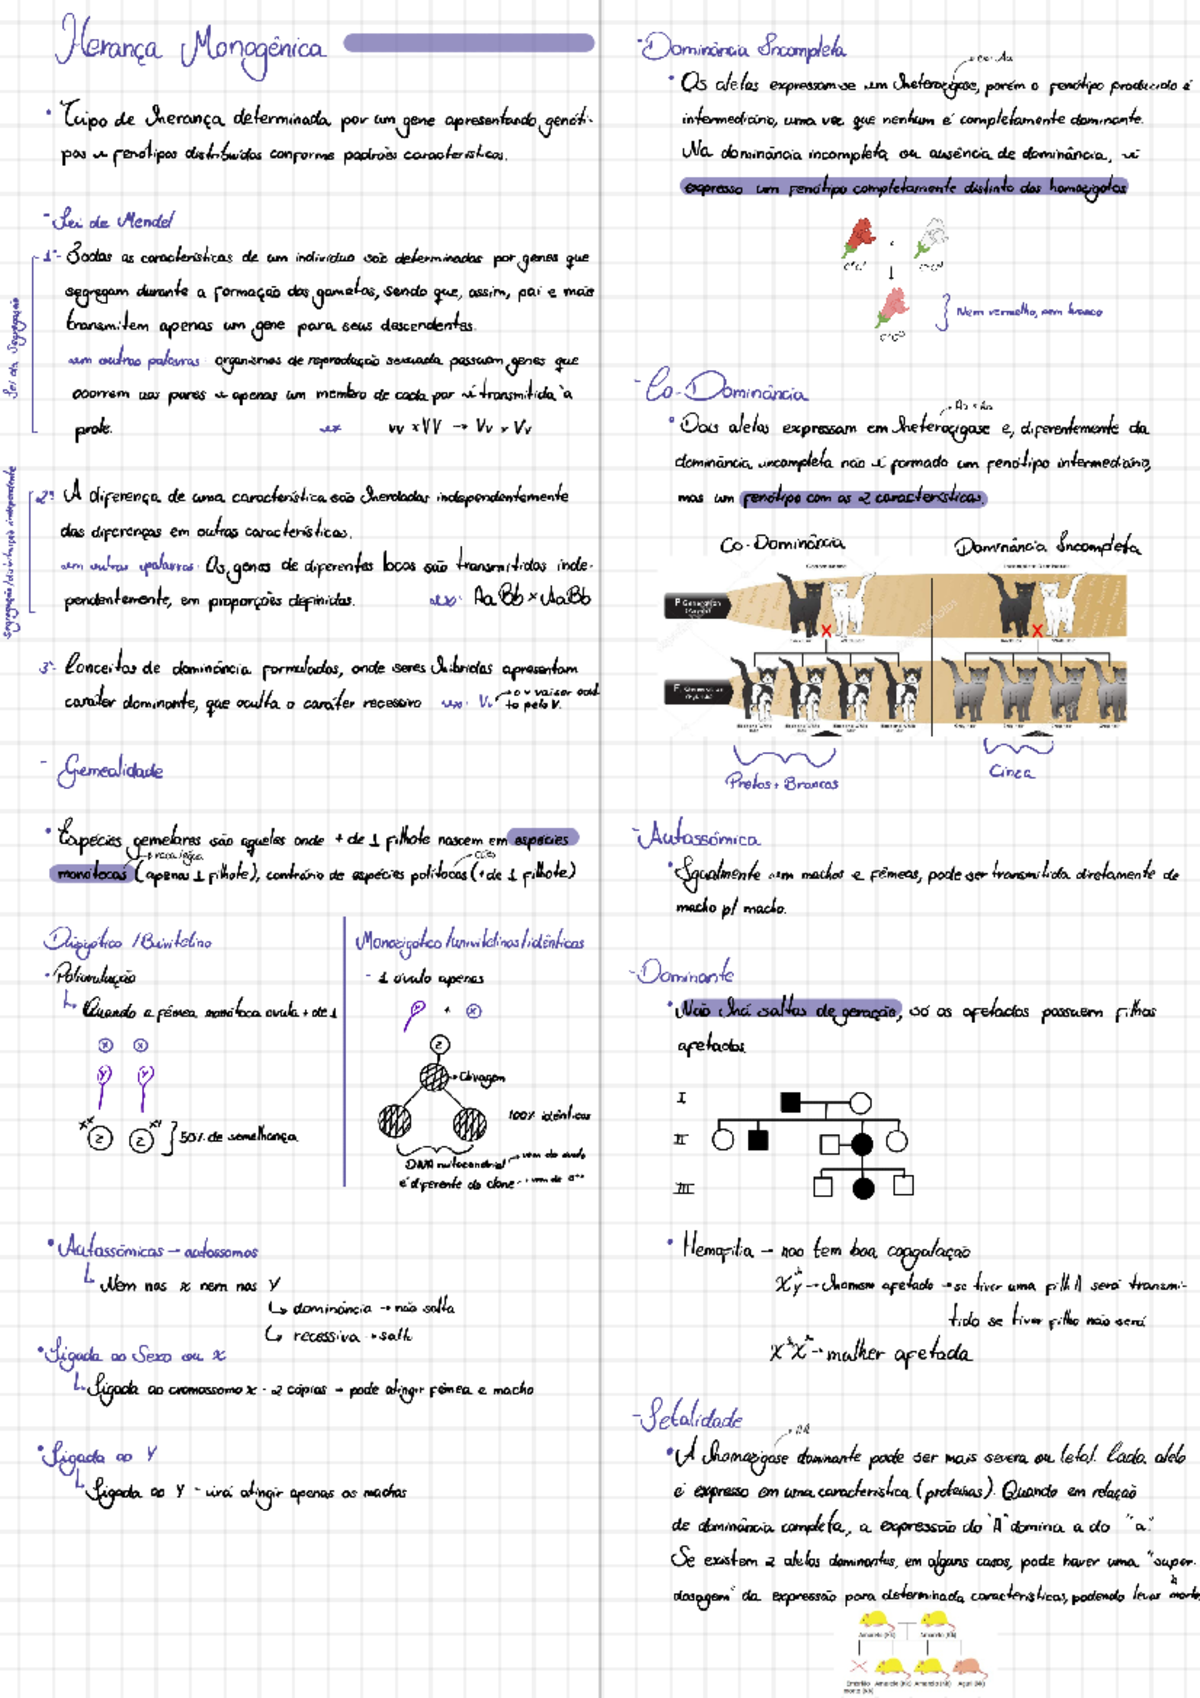 Herança Monogênica
• Tripo de herança determinada por um gene apresentando genóti-
pos e fenótipos distribuídos conforme padrões característicos.
- Lei de Mendel
Lei da Segregação
1ª- Todas as características de um indivíduo são determinadas por genes que
segregam durante a formação dos gametas, sendo que, assim, pai e mãe
transmitem apenas um gene para seus descendentes.
em outras palavras: organismos de reprodução sexuada possuem genes que
ocorrem aos pares e apenas um membro de cada par é transmitida à
prole. ex vv x VV → Vv x Vv
Segregação/distribuição independente
2ª- A diferença de uma característica são herdadas independentemente
das diferenças em outras características.
em outras palavras: Os genes de diferentes locos são transmitidos inde-
pendentemente, em proporções definidas. ex: AaBb x AaBb
3ª- Conceitos de dominância formulados, onde seres híbridos apresentam
caráter dominante, que oculta o caráter recessivo ex: Vv → o v vai ser ocul
to pelo V.
- Gemealidade
• Espécies gemelares são aquelas onde + de 1 filhote nascem em espécies
monótocas (apenas 1 filhote), contrário de espécies politocas (+ de 1 filhote)
→ vaca/égua
→ cães
Dizigótico / Bivitelino
• Poliovulação
↳ Quando a fêmea monótoca ovula + de 1
x x
Y Y
xx xy
2 2 } 50% de semelhança
Monozigótico/univitelinos/idênticos
- 1 óvulo apenas
+ x
2
→ Clivagem
100% idênticos
DNA mitocondrial → vem do óvulo
é diferente do clone
• Autossômicas → autossomos
↳ Nem nas x nem nas Y
↳ dominância → não salta
↳ recessiva → salta
• Ligada ao Sexo ou x
↳ Ligada ao cromossomo x - 2 cópias → pode atingir fêmea e macho
• Ligada ao Y
↳ Ligada ao Y - irá atingir apenas os machos
- Dominância Incompleta
• Os alelos expressam-se em heterozigose, porém o fenótipo produzido é
intermediário, uma vez que nenhum é completamente dominante.
Na dominância incompleta ou ausência de dominância, é
expresso um fenótipo completamente distinto dos homozigotos
} Nem vermelho, nem branco
- Co-Dominância
• Dois alelos expressam em heterozigose e, diferentemente da
dominância incompleta não é formado um fenótipo intermediário,
mas um fenótipo com as 2 características.
Co-Dominância
Dominância Incompleta
P Generation
F₁ Generation
Pretos + Brancos
Cinza
- Autossômica
• Igualmente em machos e fêmeas, pode ser transmitida diretamente de
macho p/ macho.
- Dominante
• Não há saltos de geração, só os afetados possuem filhos
afetados.
I
II
III
• Hemofilia → nao tem boa coagulação
XʰY → homem afetado → se tiver uma filhA será transmi-
tido se tiver filho não será
XʰXʰ → mulher afetada
- Letalidade
→ AA
• A homozigose dominante pode ser mais severa ou letal. Cada alelo
é expresso em uma característica (proteínas). Quando em relação
de dominância completa, a expressão do "A" domina a do "a".
Se existem 2 alelos dominantes, em alguns casos, pode haver uma "super-
dosagem" da expressão para determinada características, podendo levar à morte.